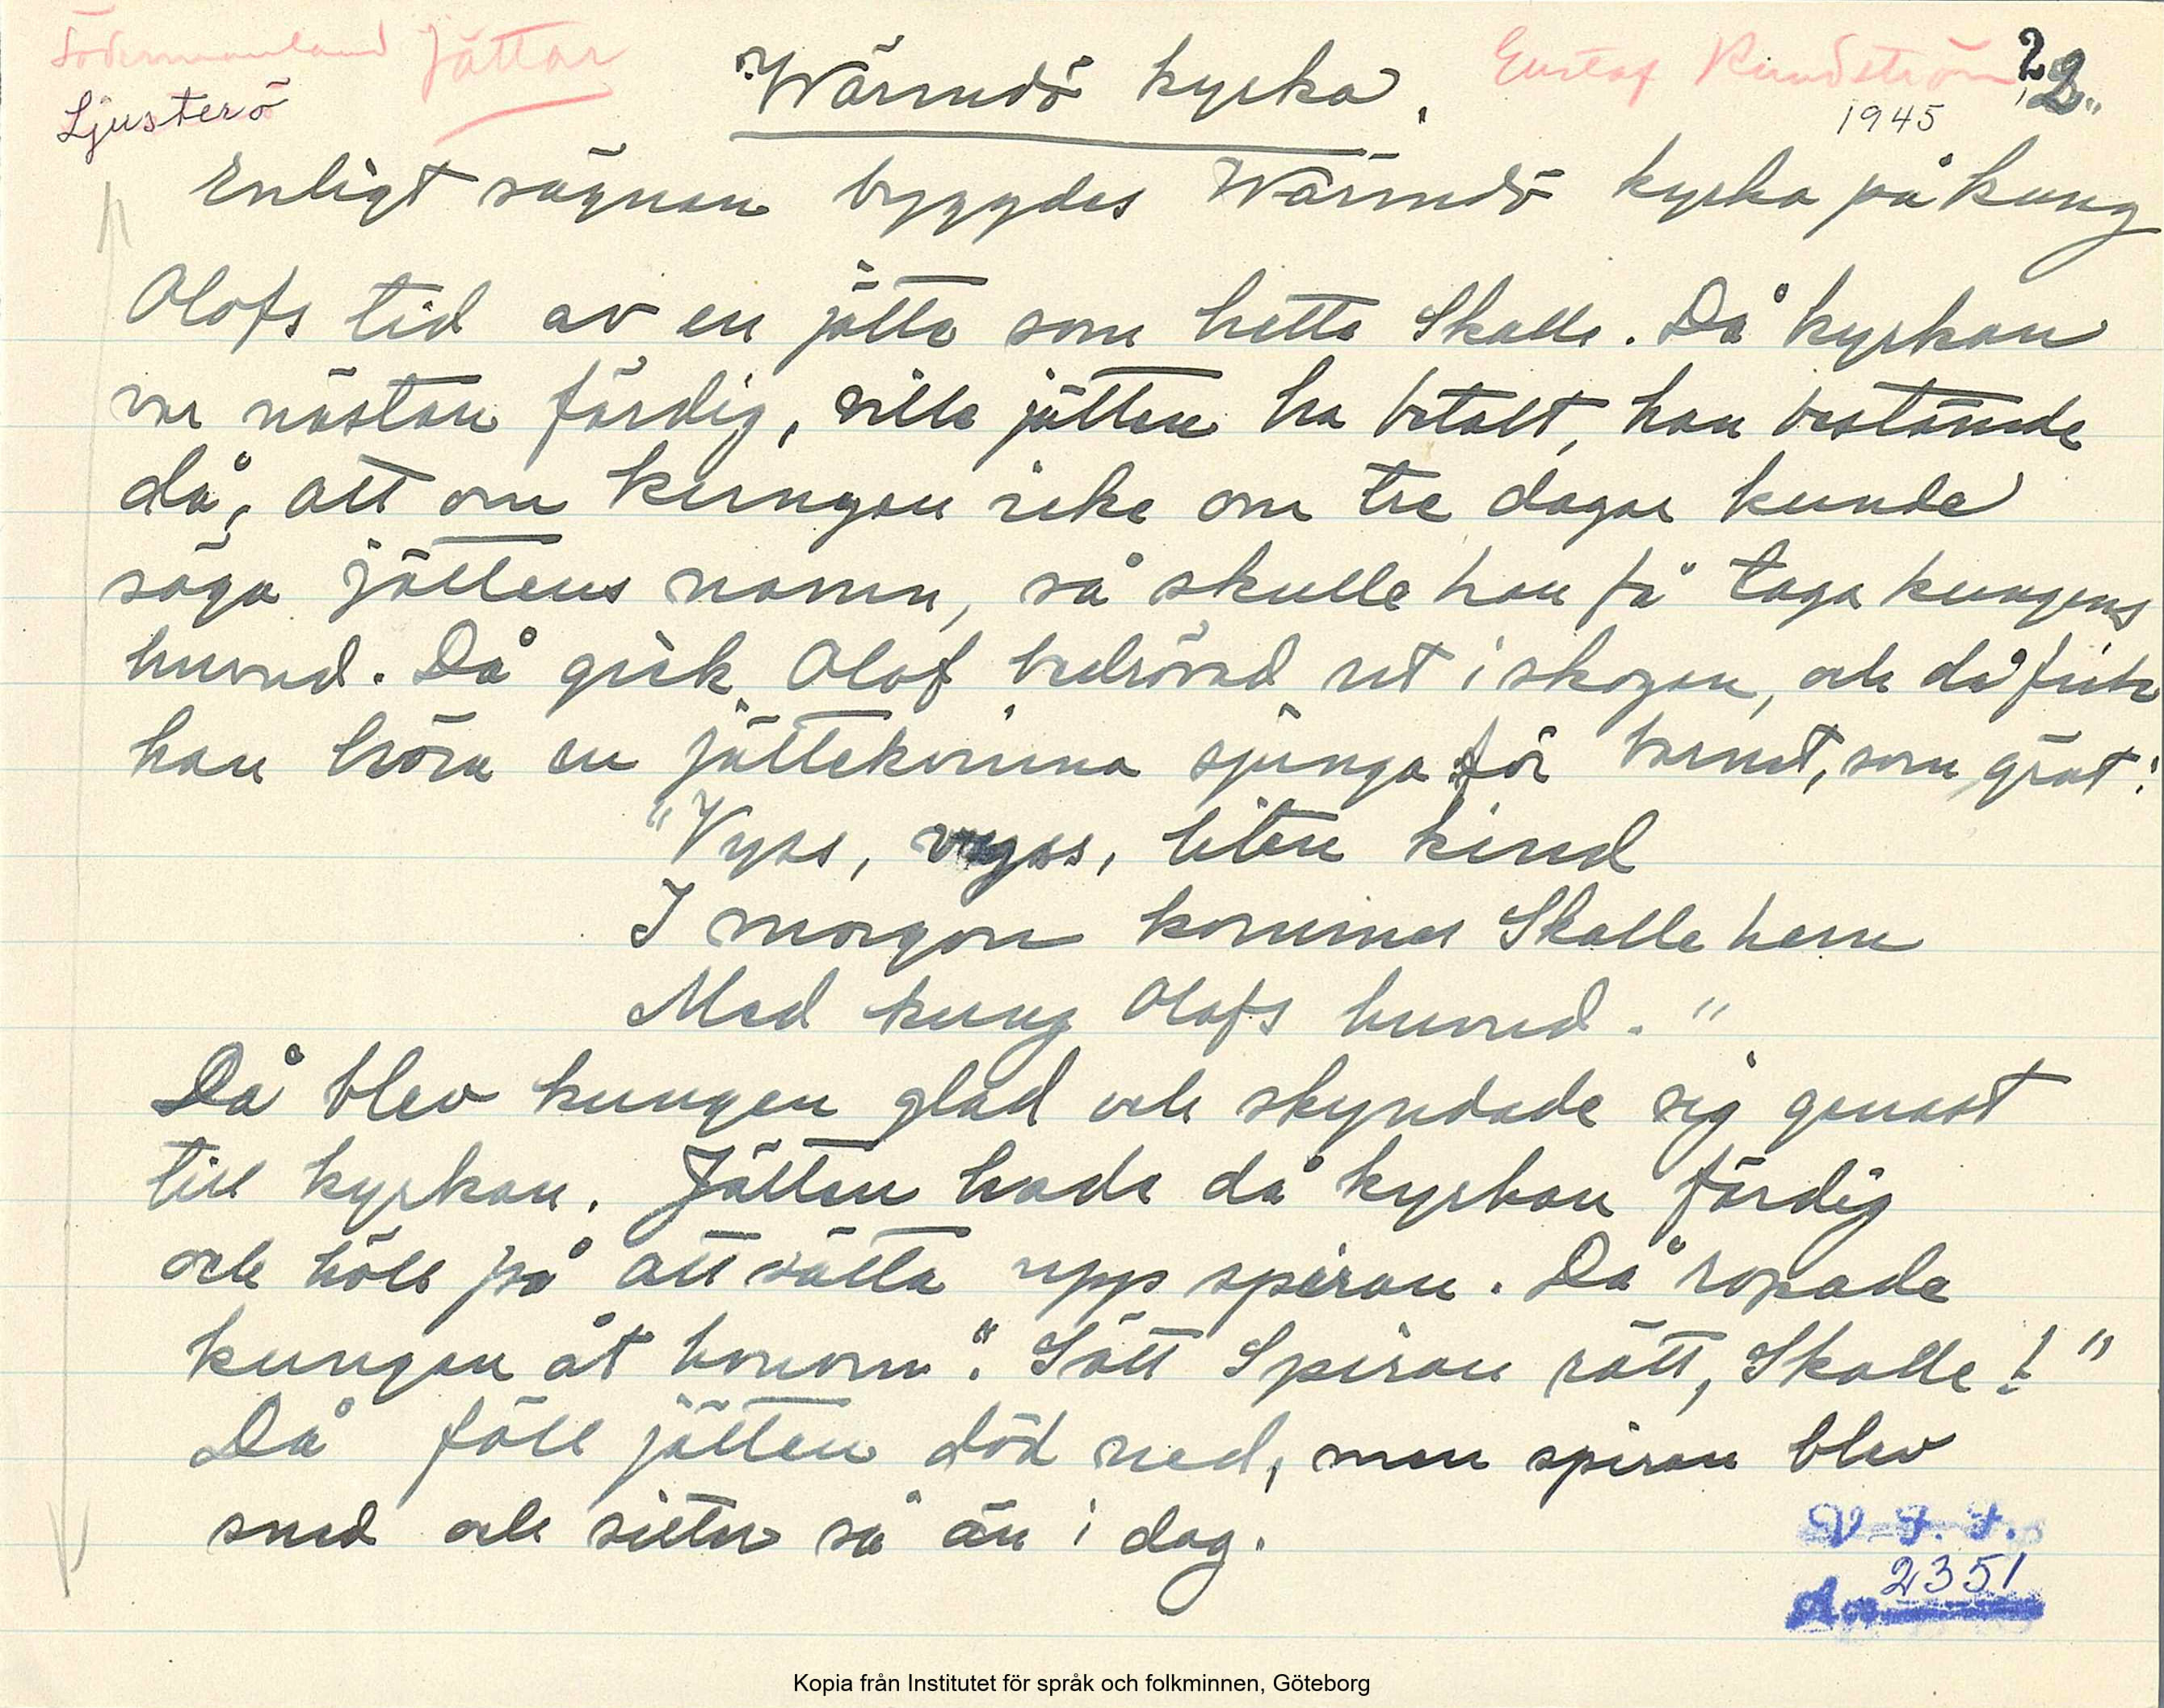 Södermanland Jättar
Ljusterö
Wärmdö kyrka.
Gustaf Rundström
1945
22.
Enligt sägnen byggdes Wärmdö kyrka på kung
Olofs tid av en jätte som hette Skalle. Då kyrkan
var nästan färdig, ville jätten ha betalt, han bestämde
då, att om kungen icke om tre dagar kunde
säga jättens namn, så skulle han få taga kungens
huvud. Då gick Olof bedrövad ut i skogen, och då fick
han höra en jättekvinna sjunga för barnet, som grät:
"Vyss, vyss, liten kind
I morgon kommer Skalle hem
Med kung Olofs huvud."
Då blev kungen glad och skyndade sig genast
till kyrkan. Jätten hade då kyrkan färdig
och höll på att sätta upp spiran. Då ropade
kungen åt honom: "Sätt Spiran rätt, Skalle!"
Då föll jätten död ned, men spiran blev
sned och sitter så än i dag.
V. F. F.
2351
Kopia från Institutet för språk och folkminnen, Göteborg